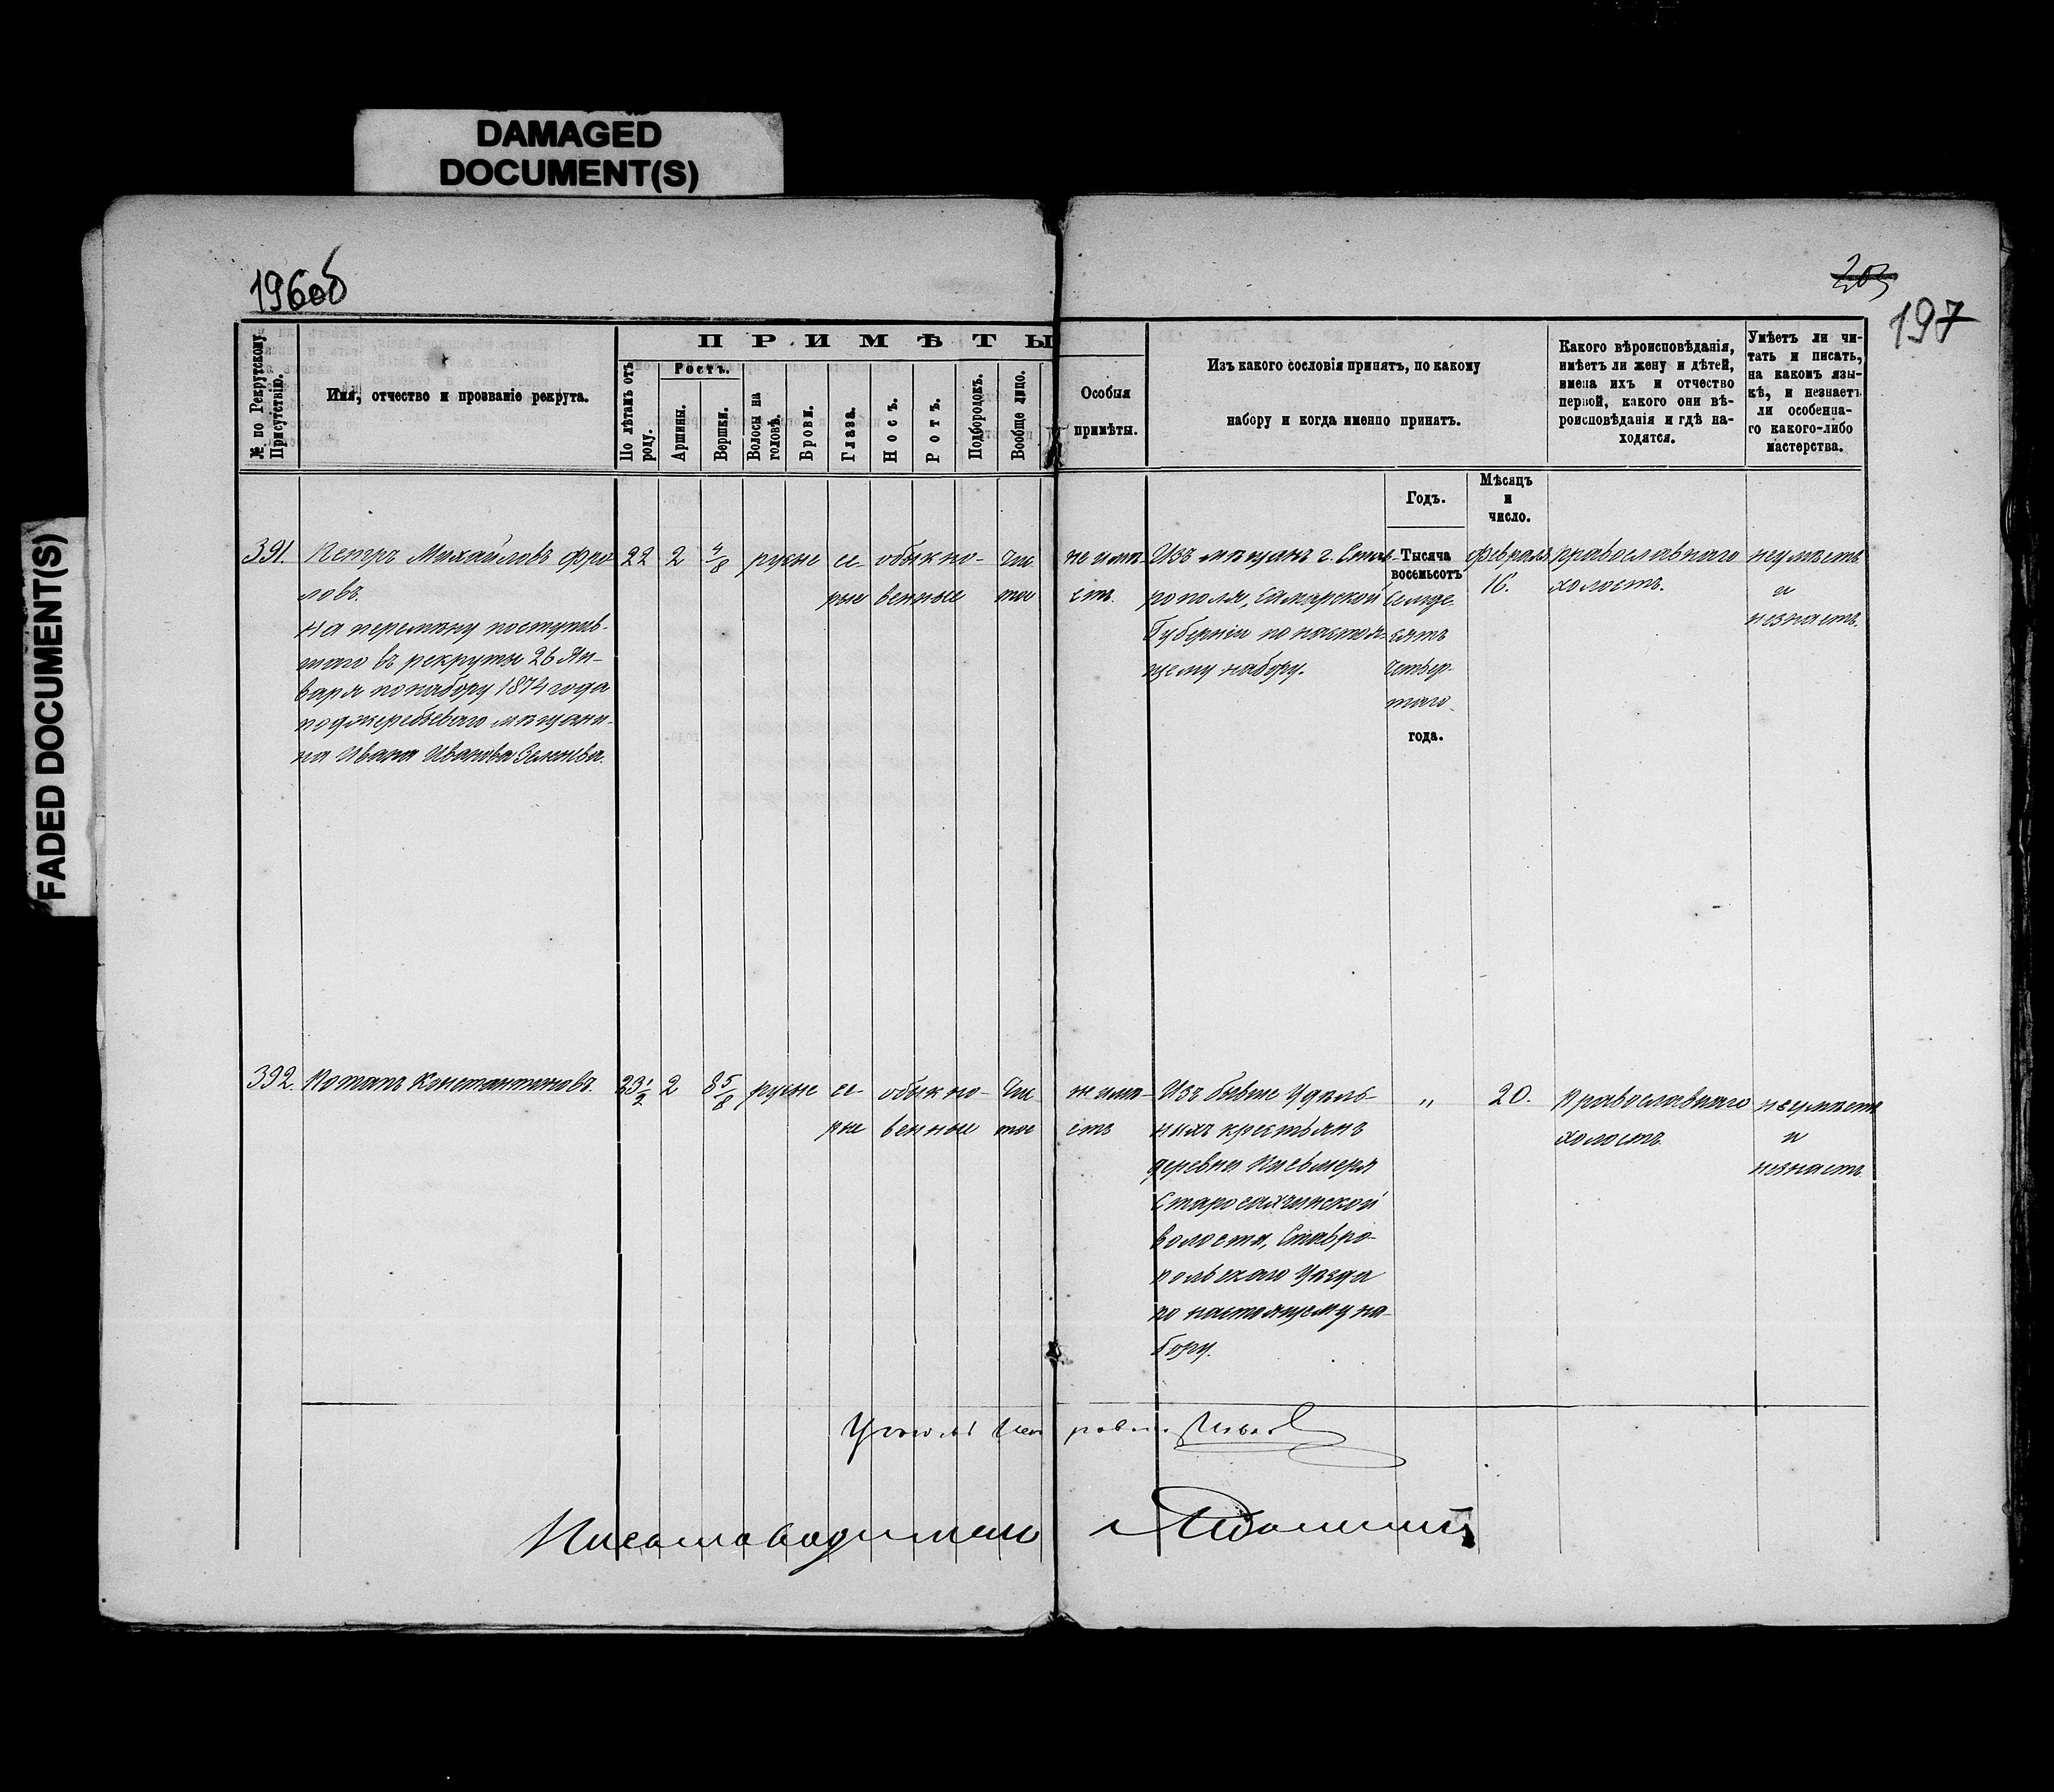 DAMAGED
DOCUMENT(S)
FADED DOCUMENT(S)
196об
203
197
№ по Рекрутскому Присутствію.
Имя, отчество и прозваніе рекрута.
ПРИМѢТЫ
По лѣтамъ отъ роду.
Ростъ.
Аршины.
Вершки.
Волосы на головѣ.
Брови.
Глаза.
Носъ.
Ротъ.
Подбородокъ.
Вообще лицо.
Особыя
примѣты.
Изъ какого сословія принятъ, по какому
набору и когда именно принятъ.
Какого вѣроисповѣданія,
имѣетъ ли жену и дѣтей,
имена ихъ и отчество
первой, какого они вѣ-
роисповѣданія и гдѣ на-
ходятся.
Умѣетъ ли чи-
тать и писать,
на какомъ язы-
кѣ, и незнаетъ
ли особенна-
го какого-либо
мастерства.
Годъ.
Мѣсяцъ
и
число.
391. Петръ Михайловъ Фро
ловъ.
На перемѣну поступив-
шаго въ рекруты 26 Ян-
варя по набору 1874 года
поджеребьеваго мѣщани-
на Ивана Иванова
22 2 4/8 русые се- обыкно- чис
рые венные тое
не имѣ-
етъ.
Изъ мѣщанъ г. Став-
рополя, Самарской
Губерніи по настоя-
щему набору.
Тысяча
восемьсотъ
семьде-
сятъ
четвер-
таго
года.
Февраля
16.
православнаго
холостъ.
неумѣетъ
и
незнаетъ.
392. Потапъ Константиновъ.
23 1/2 2 3 5/8 русые се- обыкно- чис
рые венные тое
не имѣ-
етъ
Изъ бывше Удѣль-
ныхъ крестьянъ
деревни Письмеря
Старосахчинской
волости, Ставро-
польскаго Уѣзда
по настоящему на-
бору.
" 20.
Православнаго
холостъ
неумѣетъ
и
незнаетъ.
Письмоводитель